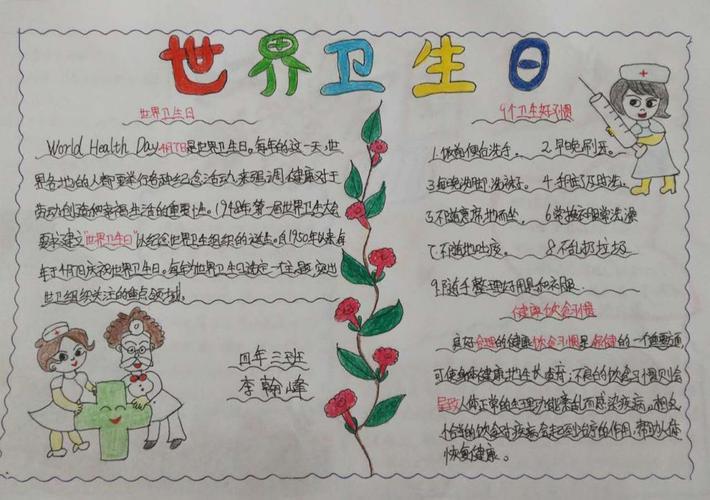 世界卫生日
世界卫生日
World Health Day 4月7日是世界卫生日。每年的这一天,世
界各地的人都要举行各种纪念活动,来强调健康对于
劳动创造和幸福生活的重要性。1948年第一届世界卫生大会
要求建立"世界卫生日"以纪念世界卫生组织的诞生。自1950年以来每
年于4月7日庆祝世界卫生日。每年为世界卫生日选定一主题,突出
世卫组织关注的重点领域。
四年三班
李翰峰
9个卫生好习惯
1.饭前便后洗手。 2.早晚刷牙。
3.每晚洗脚、洗袜子。 4.手脏了及时洗。
5.不随意席地而坐。 6.常换衣服常洗澡
7.不随地吐痰。 8.不乱扔垃圾
9.随手整理好用具和衣服
健康饮食习惯
良好合理的健康饮食习惯是保健的一个重要方面
可使身体健康地生长、发育;不良的饮食习惯则会
导致人体正常的生理功能紊乱而感染疾病。相反
恰当的饮食对疾病会起到治疗的作用,帮助人体
恢复健康。